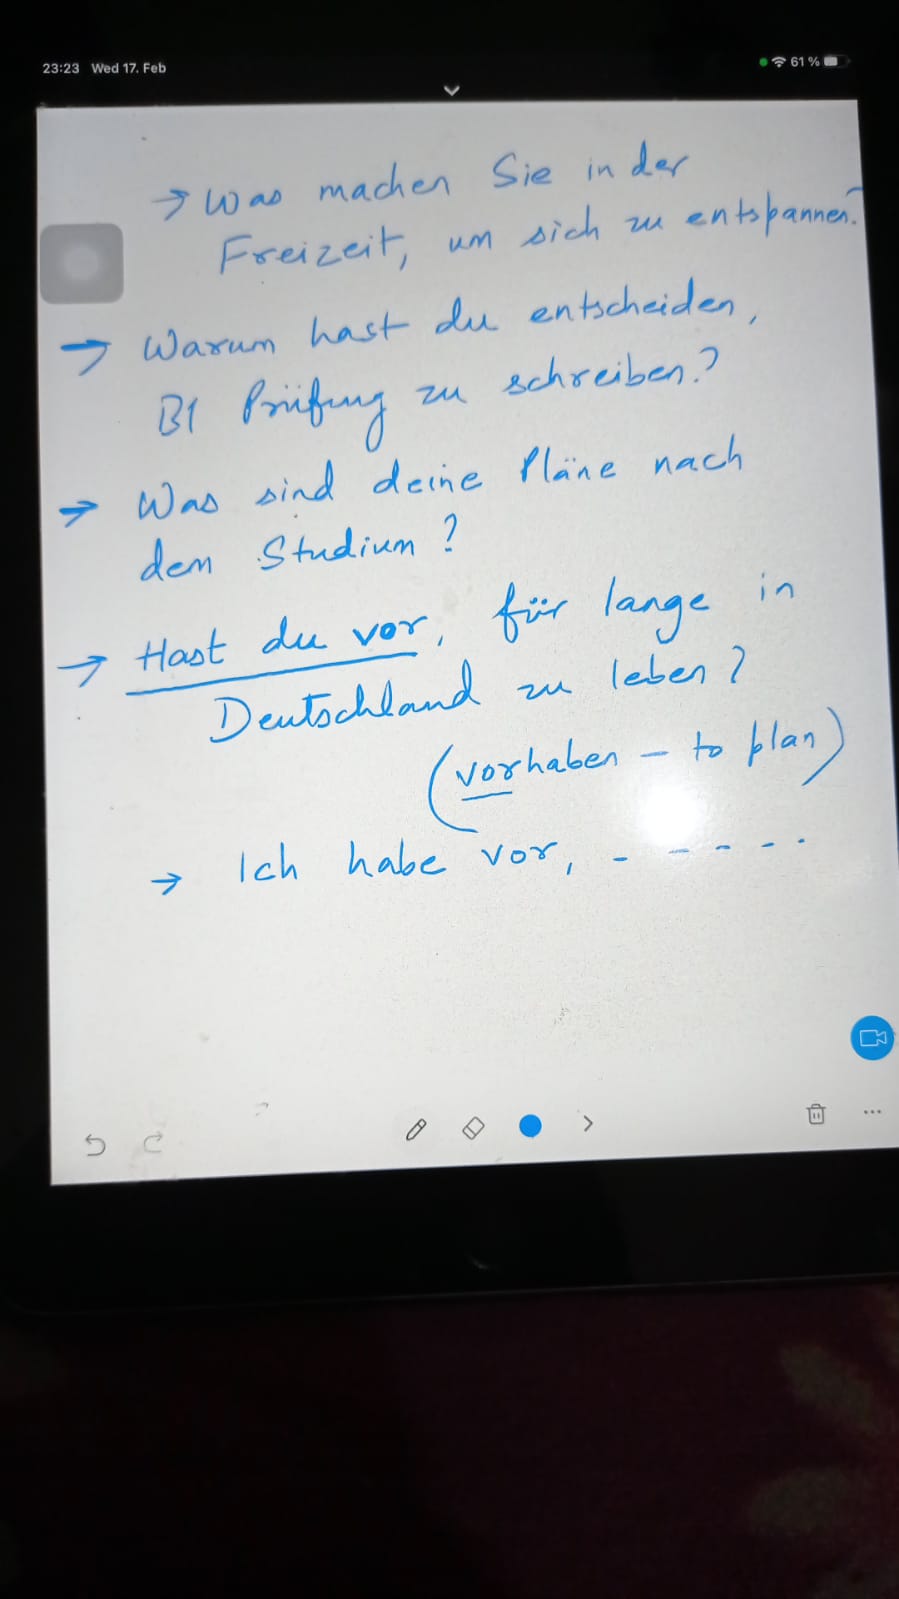 23:23 Wed 17. Feb
61 %
→ Was machen Sie in der
Freizeit, um sich zu entspannen?
→ Warum hast du entscheiden,
B1 Prüfung zu schreiben?
→ Was sind deine Pläne nach
dem Studium?
→ Hast du vor, für lange in
Deutschland zu leben?
(vorhaben – to plan)
→ Ich habe vor, - - - - - .